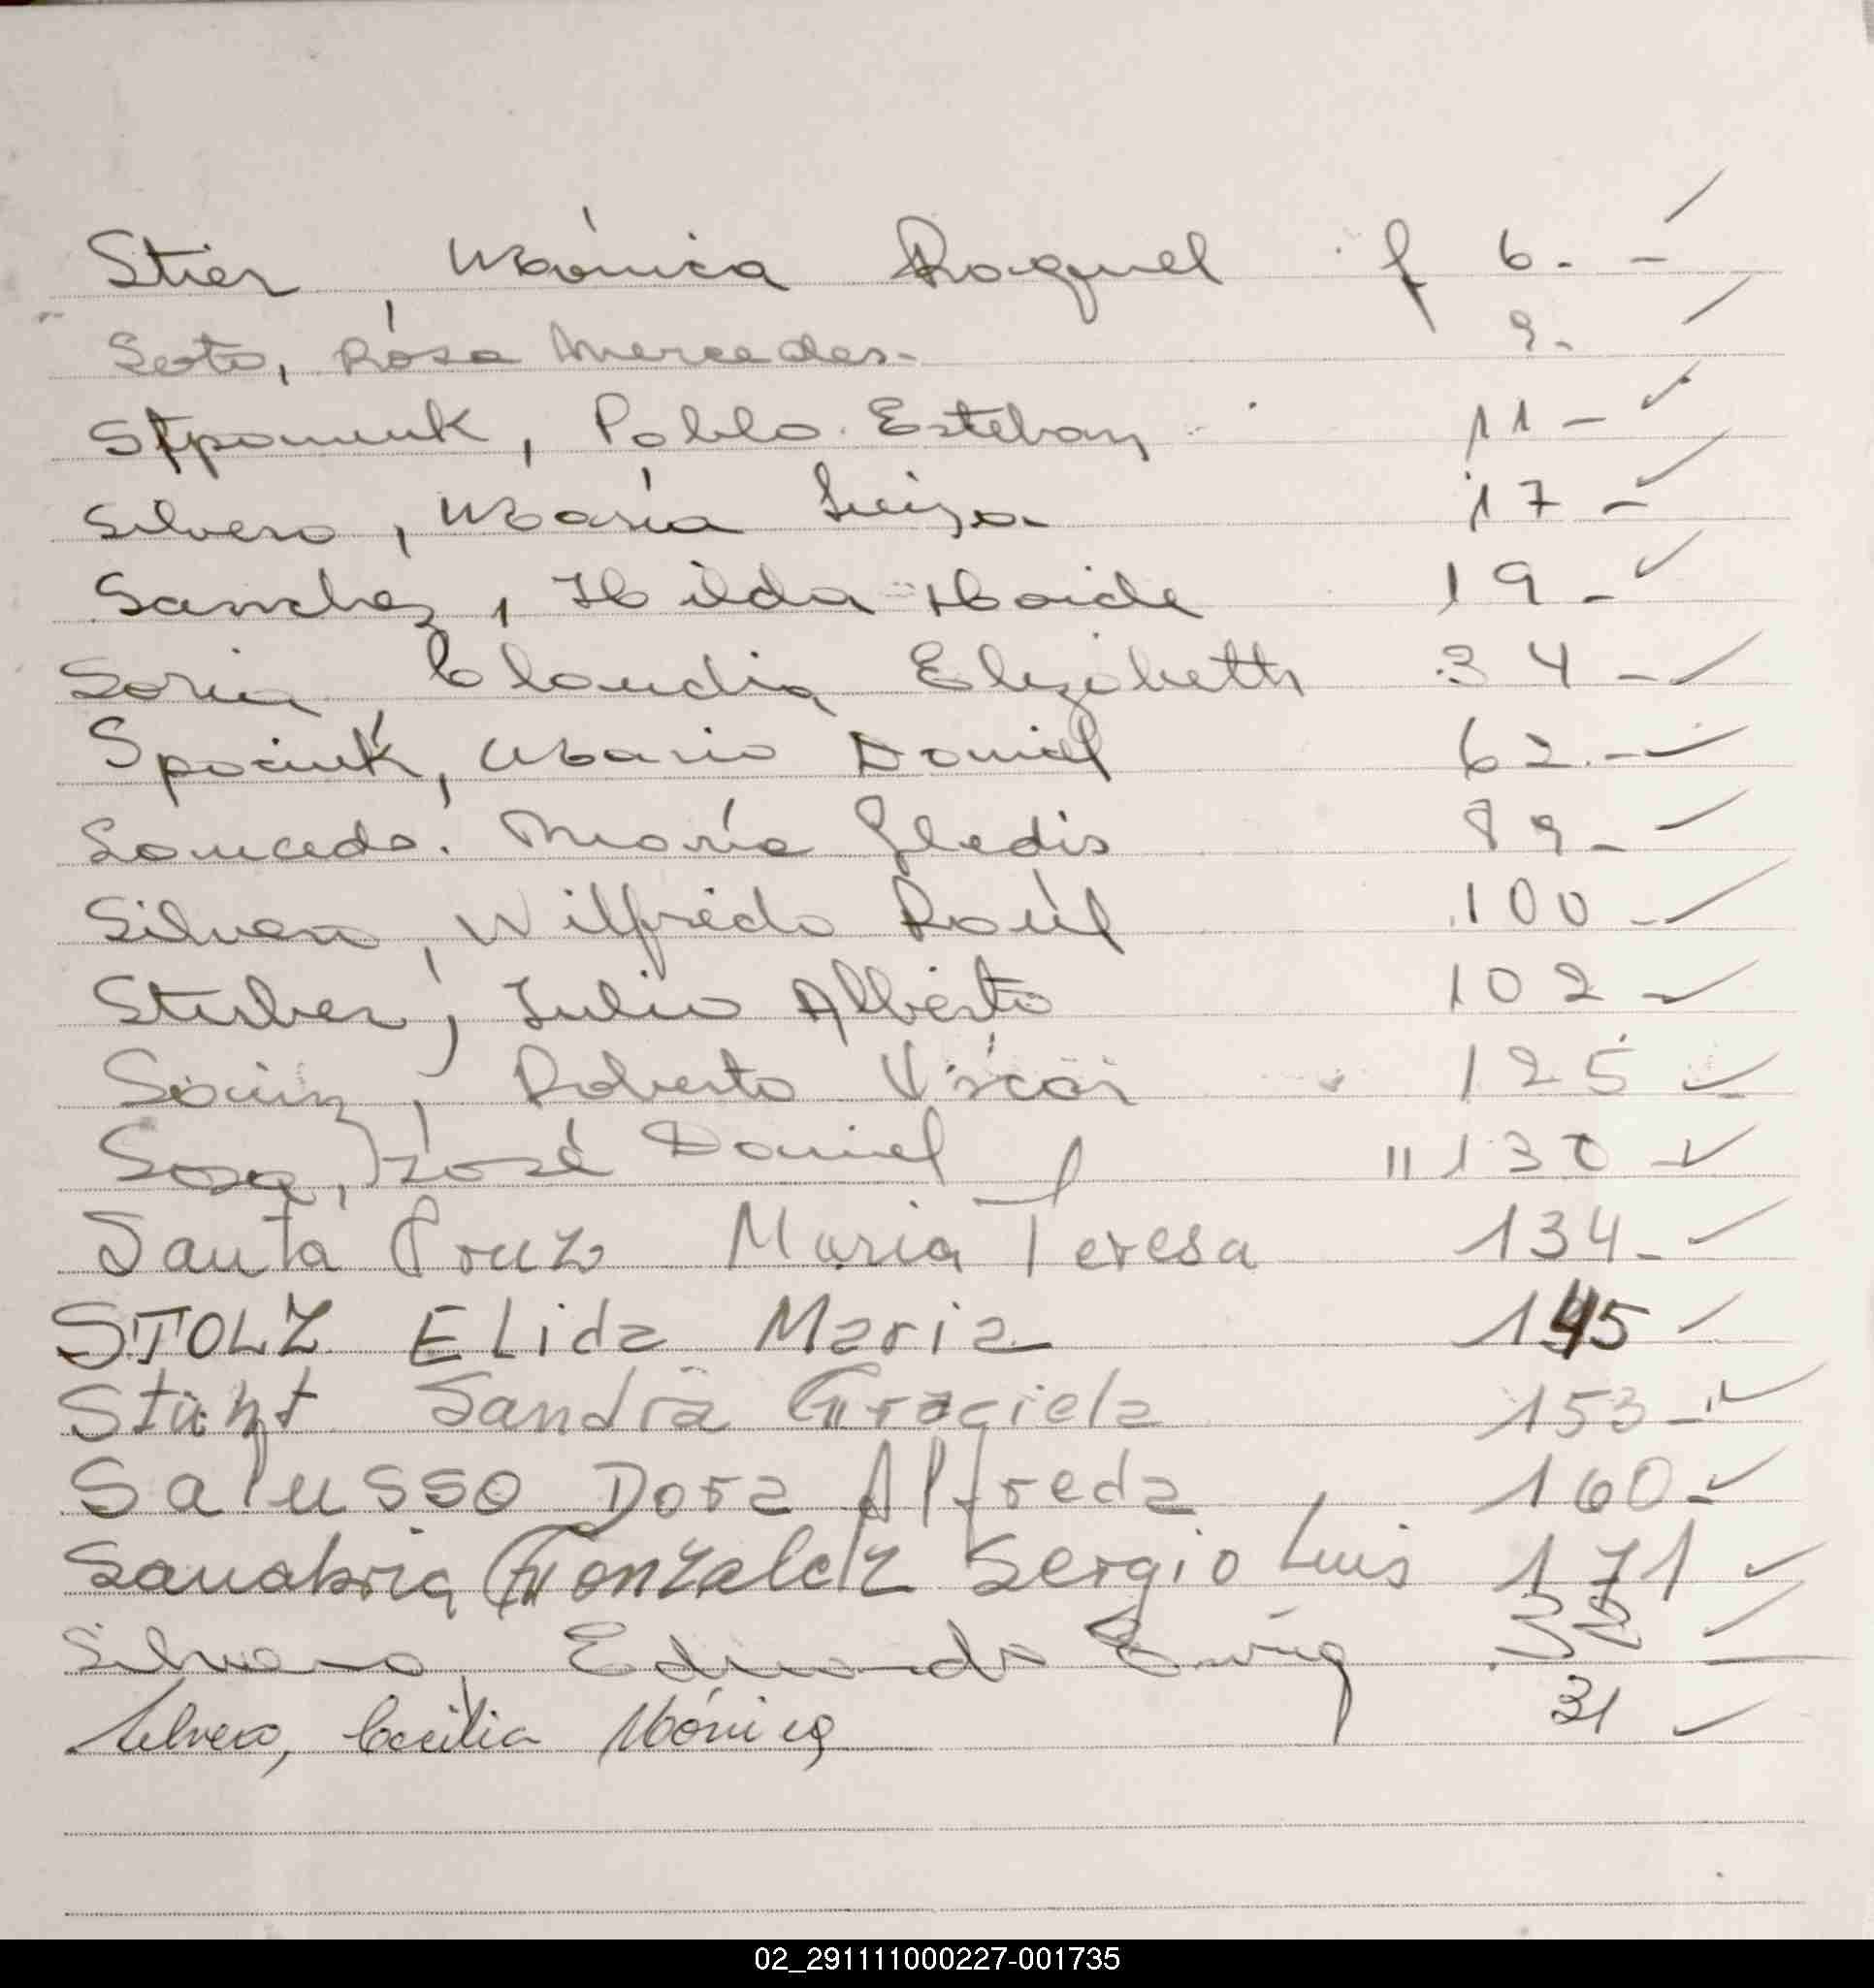 Stier, Mónica Raquel f 6. -
Soto, Rosa Mercedes. 9.
Pablo Esteban 11 -
Silvero, María Luisa 17 -
Sanchez, Hilda Haide 19 -
Soria, Claudia Elizabeth 34 -
Spaciuk, Mario Daniel 62. -
Saucedo. María Gladis 89 -
Silvero, Wilfrido Raúl 100 -
Stuber, Julio Alberto 102 -
Roberto Oscar 125 -
Sosa, José Daniel " 130 -
Santa Cruz Maria Teresa 134 -
STOLZ ELida Maria 145
Sandra Graciela 153 -
Salusso Dora Alfreda 160 -
Sanabria Gonzalez Sergio Luis 171
Silvero, Eduardo 32
Silvero, Cecilia Mónica 31
02_291111000227-001735